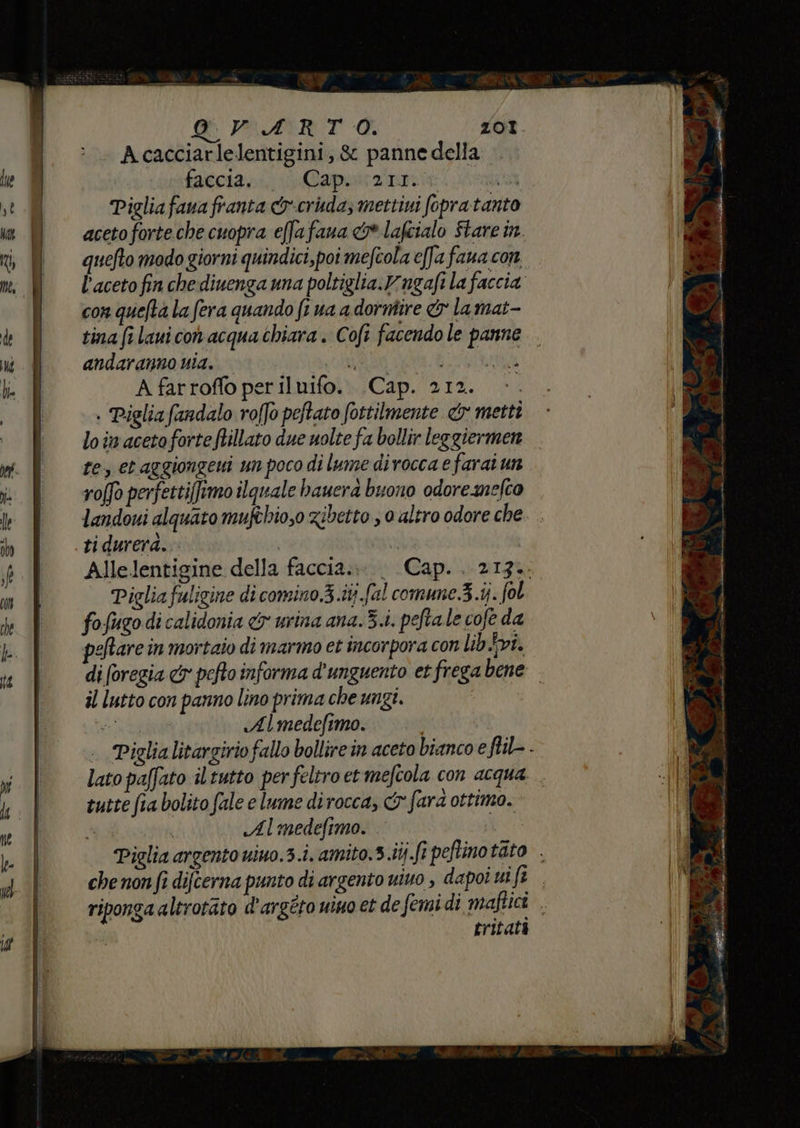 Q V A R T O. 201
A cacciar le lentigini, & panne della
faccia. Cap. 211.
Piglia faua franta & cruda, mettiui ſopra tanto
aceto forte che cuopra eſſa faua & laſcialo ſtare in
queſto modo giorni quindici, poi meſcola eſſa faua con
l'aceto fin che diuenga una poltiglia. Vngaſi la faccia
con queſta la ſera quando ſi ua a dormire & la mat-
tina ſi laui con acqua chiara. Coſi facendo le panne
andaranno uia.
A far roſſo per il uiſo. Cap. 212.
Piglia ſandalo roſſo peſtato ſottilmente & metti
lo in aceto forte ſtillato due uolte fa bollir leggiermen
te, et aggiongeui un poco di lume di rocca e farai un
roſſo perfettiſſimo ilquale hauerà buono odore meſco
landoui alquāto muſchio, o zibetto, o altro odore che
ti durerà.
Alle lentigine della faccia. Cap. 213.
Piglia fuligine di comino.℥.iij. ſal comune.℥.ij. ſol
fo ſugo di calidonia & urina ana.℥.i. peſta le coſe da
peſtare in mortaio di marmo et incorpora con lib.ſvi.
di ſoregia & peſto in forma d'unguento et frega bene
il lutto con panno lino prima che ungi.
Al medeſimo.
Piglia litargirio fallo bollire in aceto bianco e ſtil-
lato paſſato il tutto per feltro et meſcola con acqua
tutte ſia bolito ſale e lume di rocca, & farà ottimo.
Al medeſimo.
Piglia argento uiuo.℥.i. amito.℥.iij. ſi peſtino tāto
che non ſi diſcerna punto di argento uiuo, dapoi ui ſi
riponga altrotāto d'argēto uiuo et de ſemi di maſtici
tritati
due
de
che